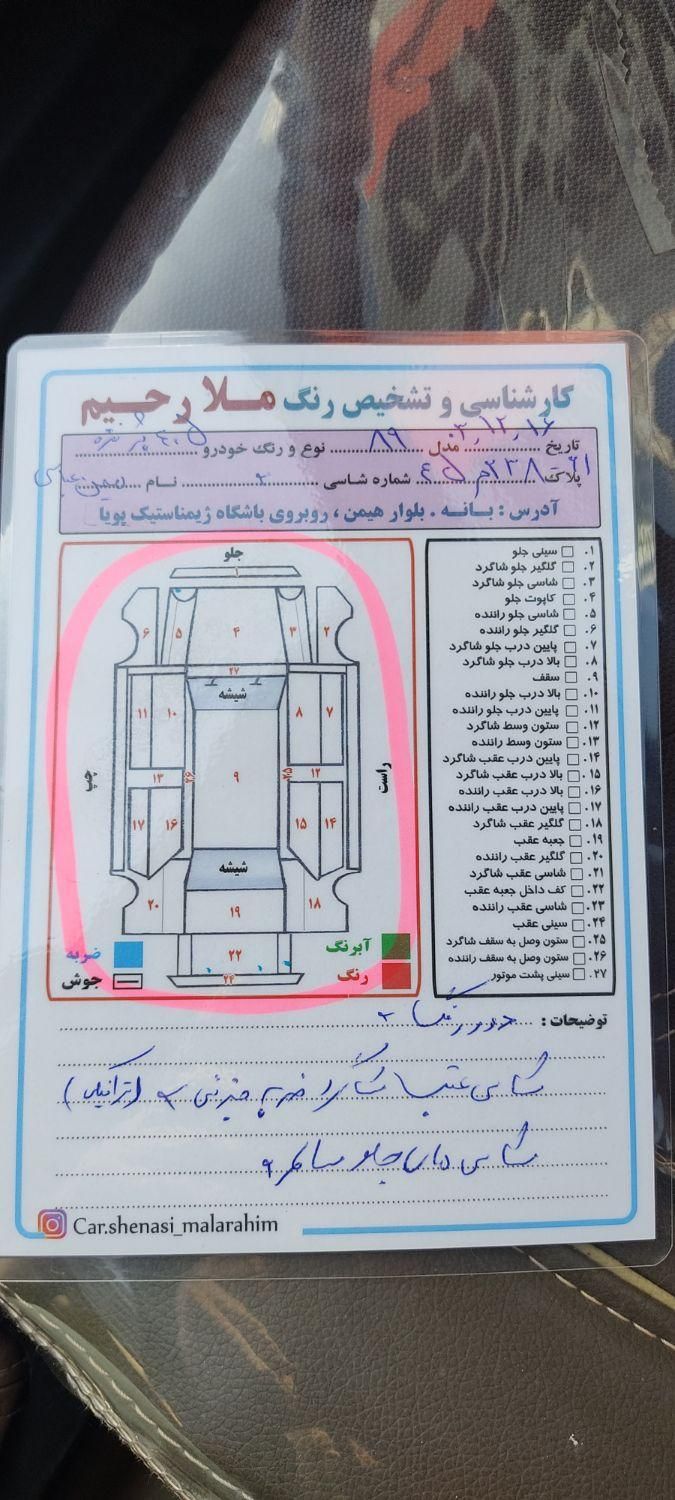 کارشناسی و تشخیص رنگ ملا رحیم
تاریخ ۰۳,۱۲,۱۶ مدل ۸۹ نوع و رنگ خودرو ۴۰۵
پلاک ۲۳۸م۴۵ شماره شاسی نام
آدرس : بـانـه . بلوار هیمن ، روبروی باشگاه ژیمناستیک پویا
جلو
۱
۶ ۵ ۴ ۳ ۲
۲۷
شیشه
۱۱ ۱۰ ۸ ۷
چپ ۱۳ ۲۶ ۹ ۲۵ ۱۲ راست
۱۷ ۱۶ ۱۵ ۱۴
شیشه
۲۰ ۱۹ ۱۸
۲۲
۲۴
ضربه
جوش
آبرنگ
رنگ
۱. سینی جلو
۲. گلگیر جلو شاگرد
۳. شاسی جلو شاگرد
۴. کاپوت جلو
۵. شاسی جلو راننده
۶. گلگیر جلو راننده
۷. پایین درب جلو شاگرد
۸. بالا درب جلو شاگرد
۹. سقف
۱۰. بالا درب جلو راننده
۱۱. پایین درب جلو راننده
۱۲. ستون وسط شاگرد
۱۳. ستون وسط راننده
۱۴. پایین درب عقب شاگرد
۱۵. بالا درب عقب شاگرد
۱۶. بالا درب عقب راننده
۱۷. پایین درب عقب راننده
۱۸. گلگیر عقب شاگرد
۱۹. جعبه عقب
۲۰. گلگیر عقب راننده
۲۱. شاسی عقب شاگرد
۲۲. کف داخل جعبه عقب
۲۳. شاسی عقب راننده
۲۴. سینی عقب
۲۵. ستون وصل به سقف شاگرد
۲۶. ستون وصل به سقف راننده
۲۷. سینی پشت موتور
توضیحات : دور رنگ
شاسی عقب شاگرد ضربه جزئی
شاسی های جلو سالم
Car.shenasi_malarahim